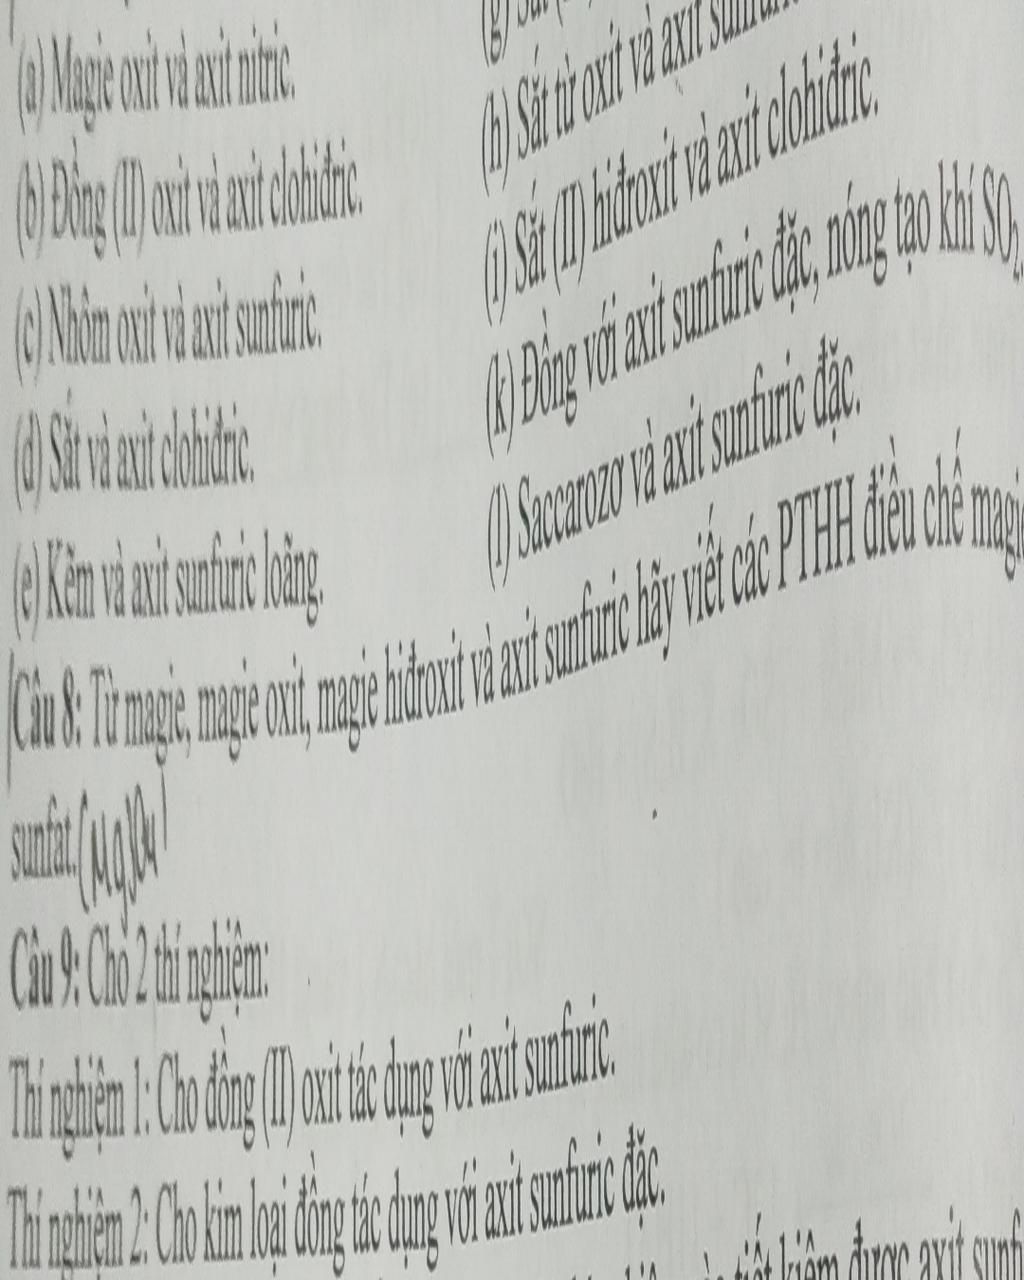 (a) Magie oxit và axit nitric.
(b) Đồng (II) oxit và axit clohiđric.
(c) Nhôm oxit và axit sunfuric.
(d) Sắt và axit clohiđric.
(e) Kẽm và axit sunfuric loãng.
(g) Sắt
(h) Sắt từ oxit và axit
(i) Sắt (II) hiđroxit và axit clohiđric.
(k) Đồng với axit sunfuric đặc, nóng tạo khí SO₂.
(l) Saccarozơ và axit sunfuric đặc.
Câu 8: Từ magie, magie oxit, magie hiđroxit và axit sunfuric hãy viết các PTHH điều chế magie
sunfat.
Câu 9: Cho 2 thí nghiệm:
Thí nghiệm 1: Cho đồng (II) oxit tác dụng với axit sunfuric.
Thí nghiệm 2: Cho kim loại đồng tác dụng với axit sunfuric đặc.
tiết kiệm được axit